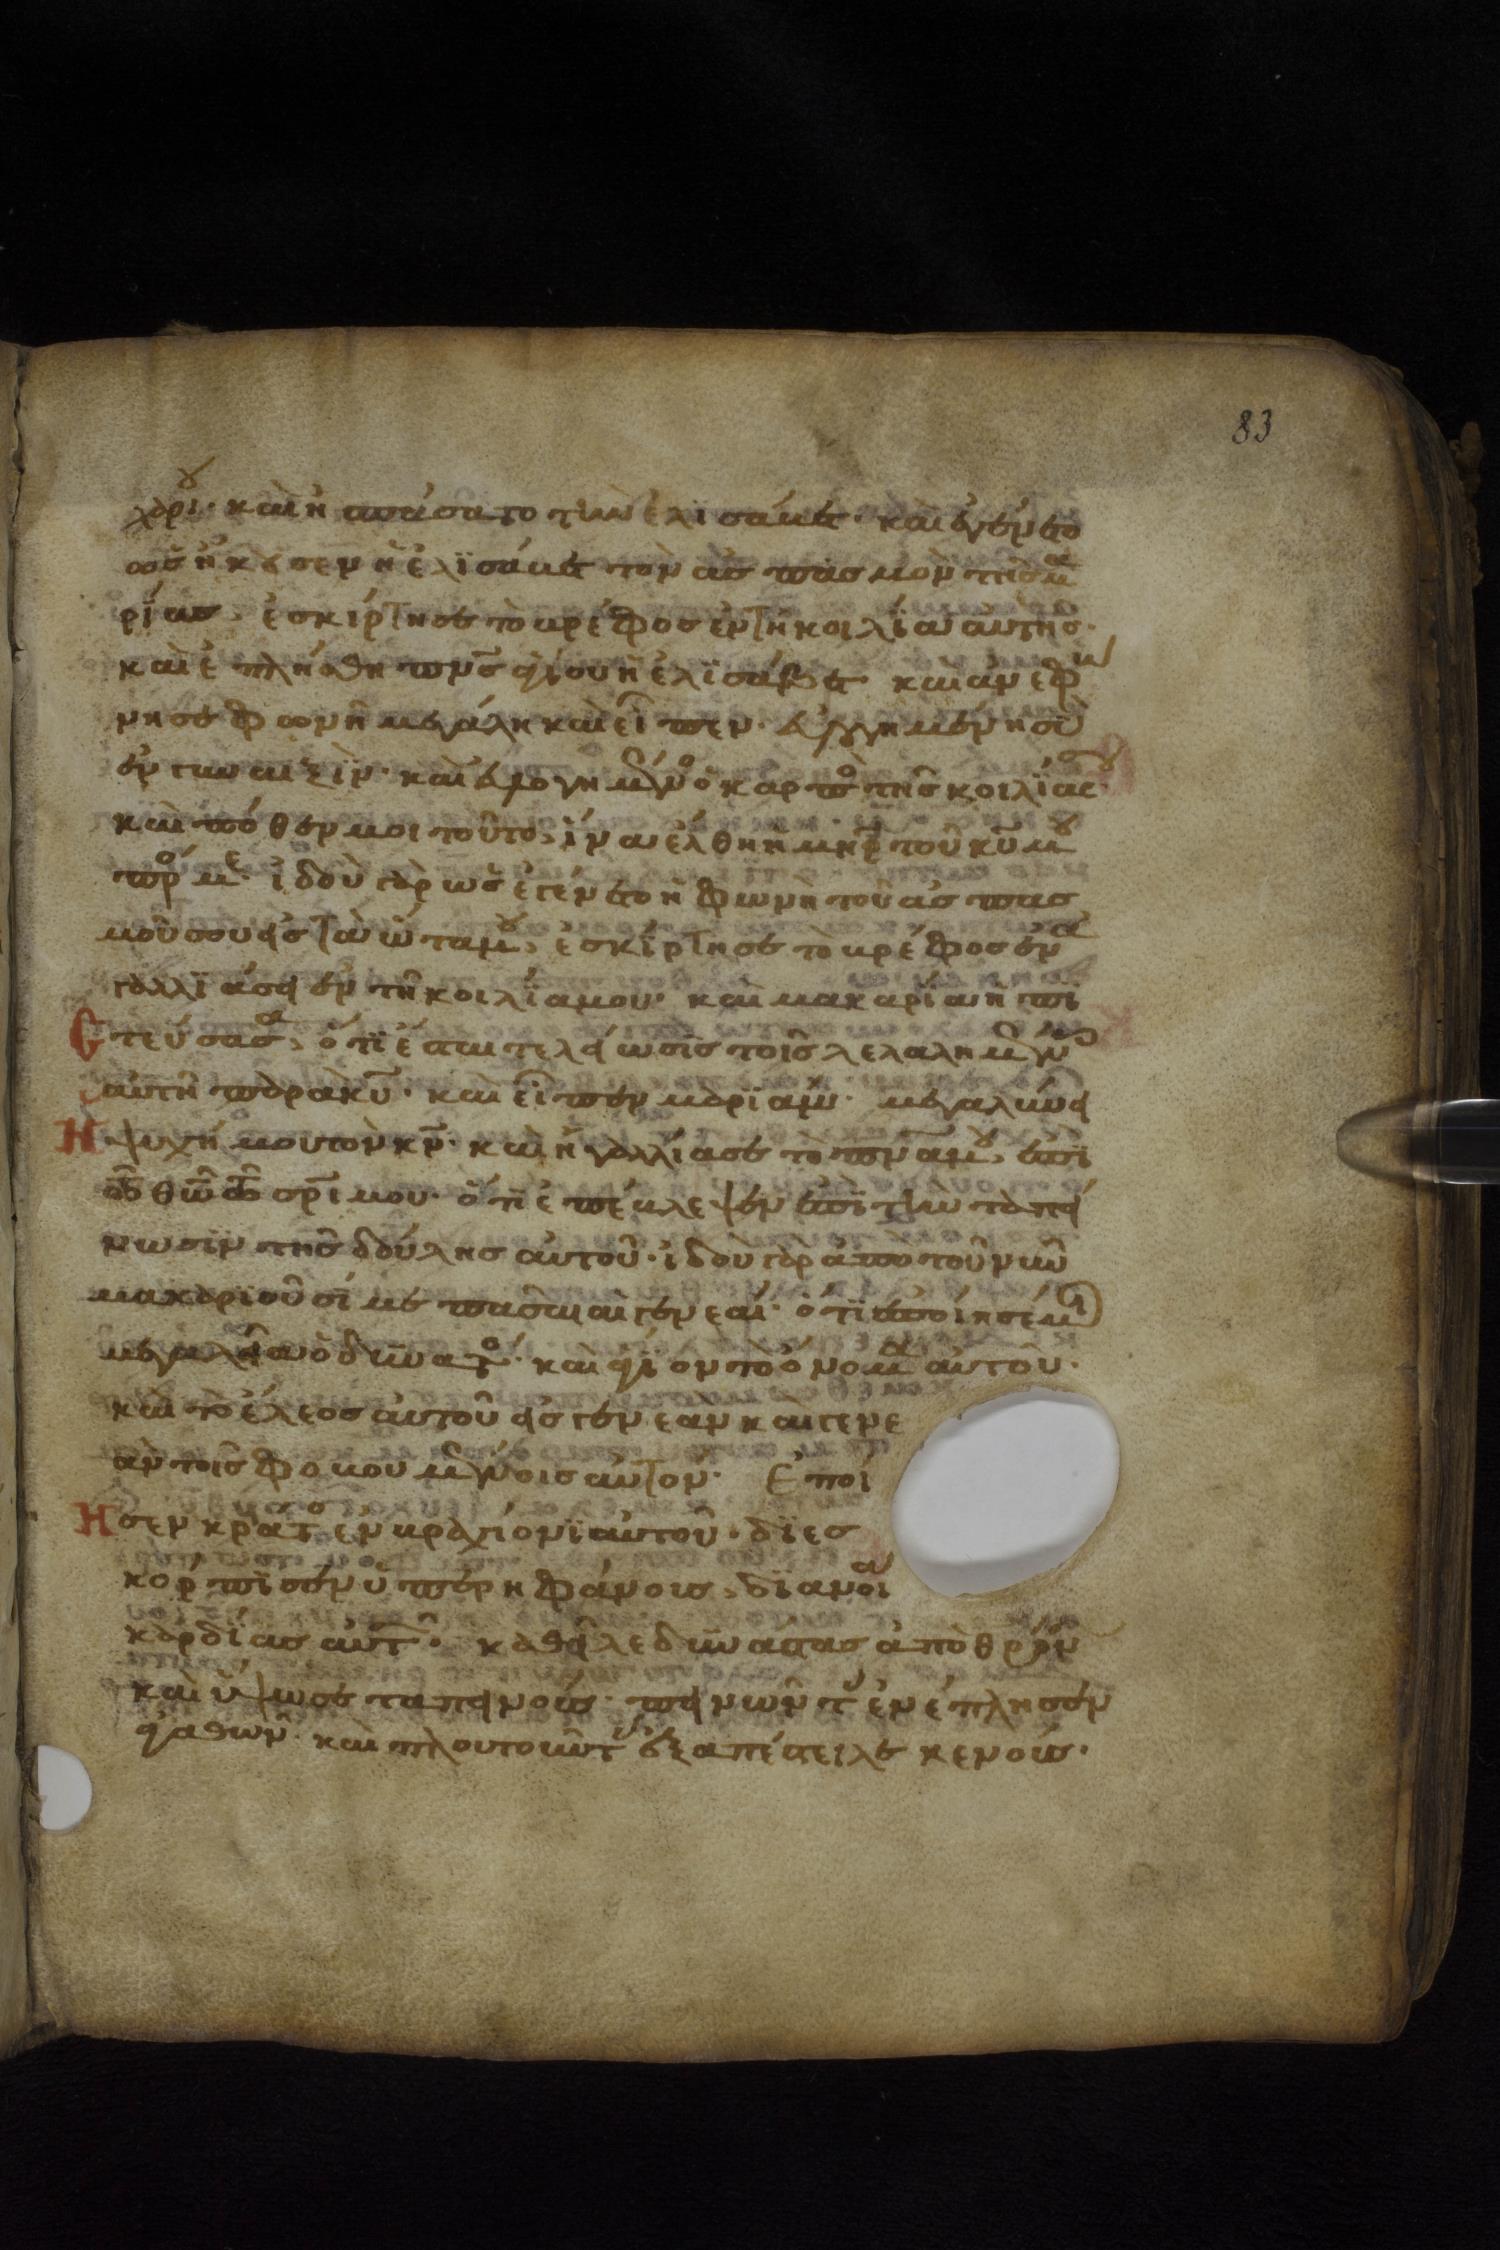 83
χαρίου· καὶ ἠσπάσατο τὴν ἐλϊσάβετ· καὶ ἐγένετο
ὡς ἤκουσεν ἡ ἐλϊσάβετ τὸν ἀσπασμὸν τῆς μα
ρίας, ἐσκίρτησε τὸ βρέφος ἐν τῆ κοιλία αὐτῆς·
καὶ ἐπλήσθη πνς ἁγίου ἡ ἐλϊσάβετ· καὶ ἀνεφώ
νησε φωνῆ μεγάλη καὶ εἶπεν· εὐλογημένη σὺ
ἐν γυναιξὶν· καὶ εὐλογημένος ὁ καρπὸς τῆς κοιλίας σου·
καὶ πόθεν μοι τοῦτο, ἵνα ἔλθη ἡ μηρ τοῦ κυ μου
πρός με· ἰδοὺ γὰρ ὡς ἐγένετο ἡ φωνὴ τοῦ ἀσπασ
μοῦ σου εἰς τὰ ὦτά μου, ἐσκίρτησε τὸ βρέφος ἐν ἀ
γαλλϊάσει ἐν τῆ κοιλία μου· καὶ μακαρία ἡ πι
στεύσασα, ὅτι ἔσται τελείωσις τοῖς λελαλημένοις
αὐτῆ παρὰ κυ· καὶ εἶπεν μαρϊάμ· μεγαλύνει
Η ψυχή μου τὸν κν· καὶ ἠγαλλίασε τὸ πνα μου, ἐπὶ
τῶ θῶ τῶ σρι μου· ὅτι ἐπέβλεψεν ἐπὶ τὴν ταπεί
νωσιν τῆς δούλης αὐτοῦ· ἰδοὺ γὰρ ἀπὸ τοῦ νῦν
μακαριοῦσί με πᾶσαι αἱ γενεαί· ὅτι ἐποίησέ μοι
μεγαλεῖα ὁ δυνατός· καὶ ἅγιον τὸ ὄνομα αὐτοῦ·
καὶ τὸ ἔλεος αὐτοῦ εἰς γενεὰν καὶ γενε
ὰν τοῖς φοβουμένοις αὐτόν· Ἐποί
Ησεν κράτος ἐν βραχίονϊ αὐτοῦ· δϊεσ
κόρπισεν ὑπερηφάνους, δϊανοία
καρδίας αὐτῶν· καθεῖλε δυνάστας ἀπὸ θρόνων
καὶ ὕψωσε ταπεινούς· πεινῶντας ἐνέπλησεν
ἀγαθῶν· καὶ πλουτοῦντας ἐξαπέστειλε κενούς·